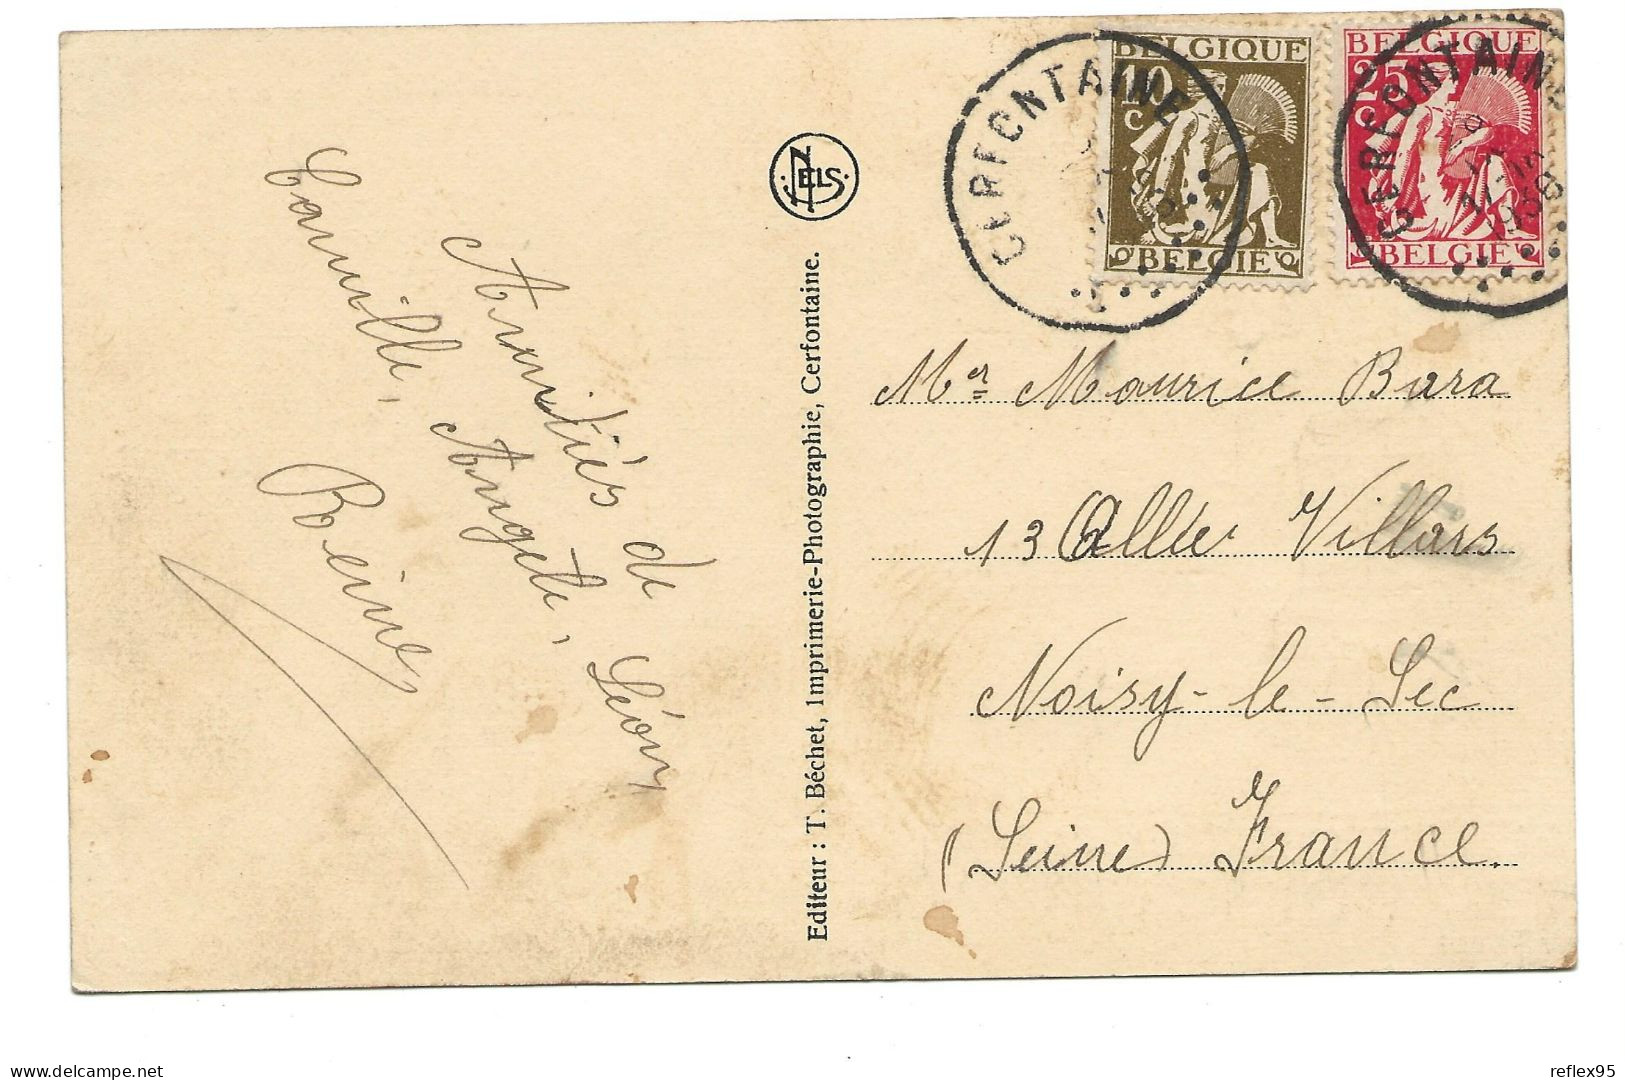 Amitiés de
Camille, Angèle, Léon
Reine
NELS
Editeur : T. Béchet, Imprimerie-Photographie, Cerfontaine.
BELGIQUE
10
C
BELGIE
CERFONTAINE
BELGIQUE
25
C
BELGIE
CERFONTAINE
1938
Mr Maurice Bara
13 Allée Villars
Noisy-le-Sec
(Seine) France.
delcampe.net
reflex95